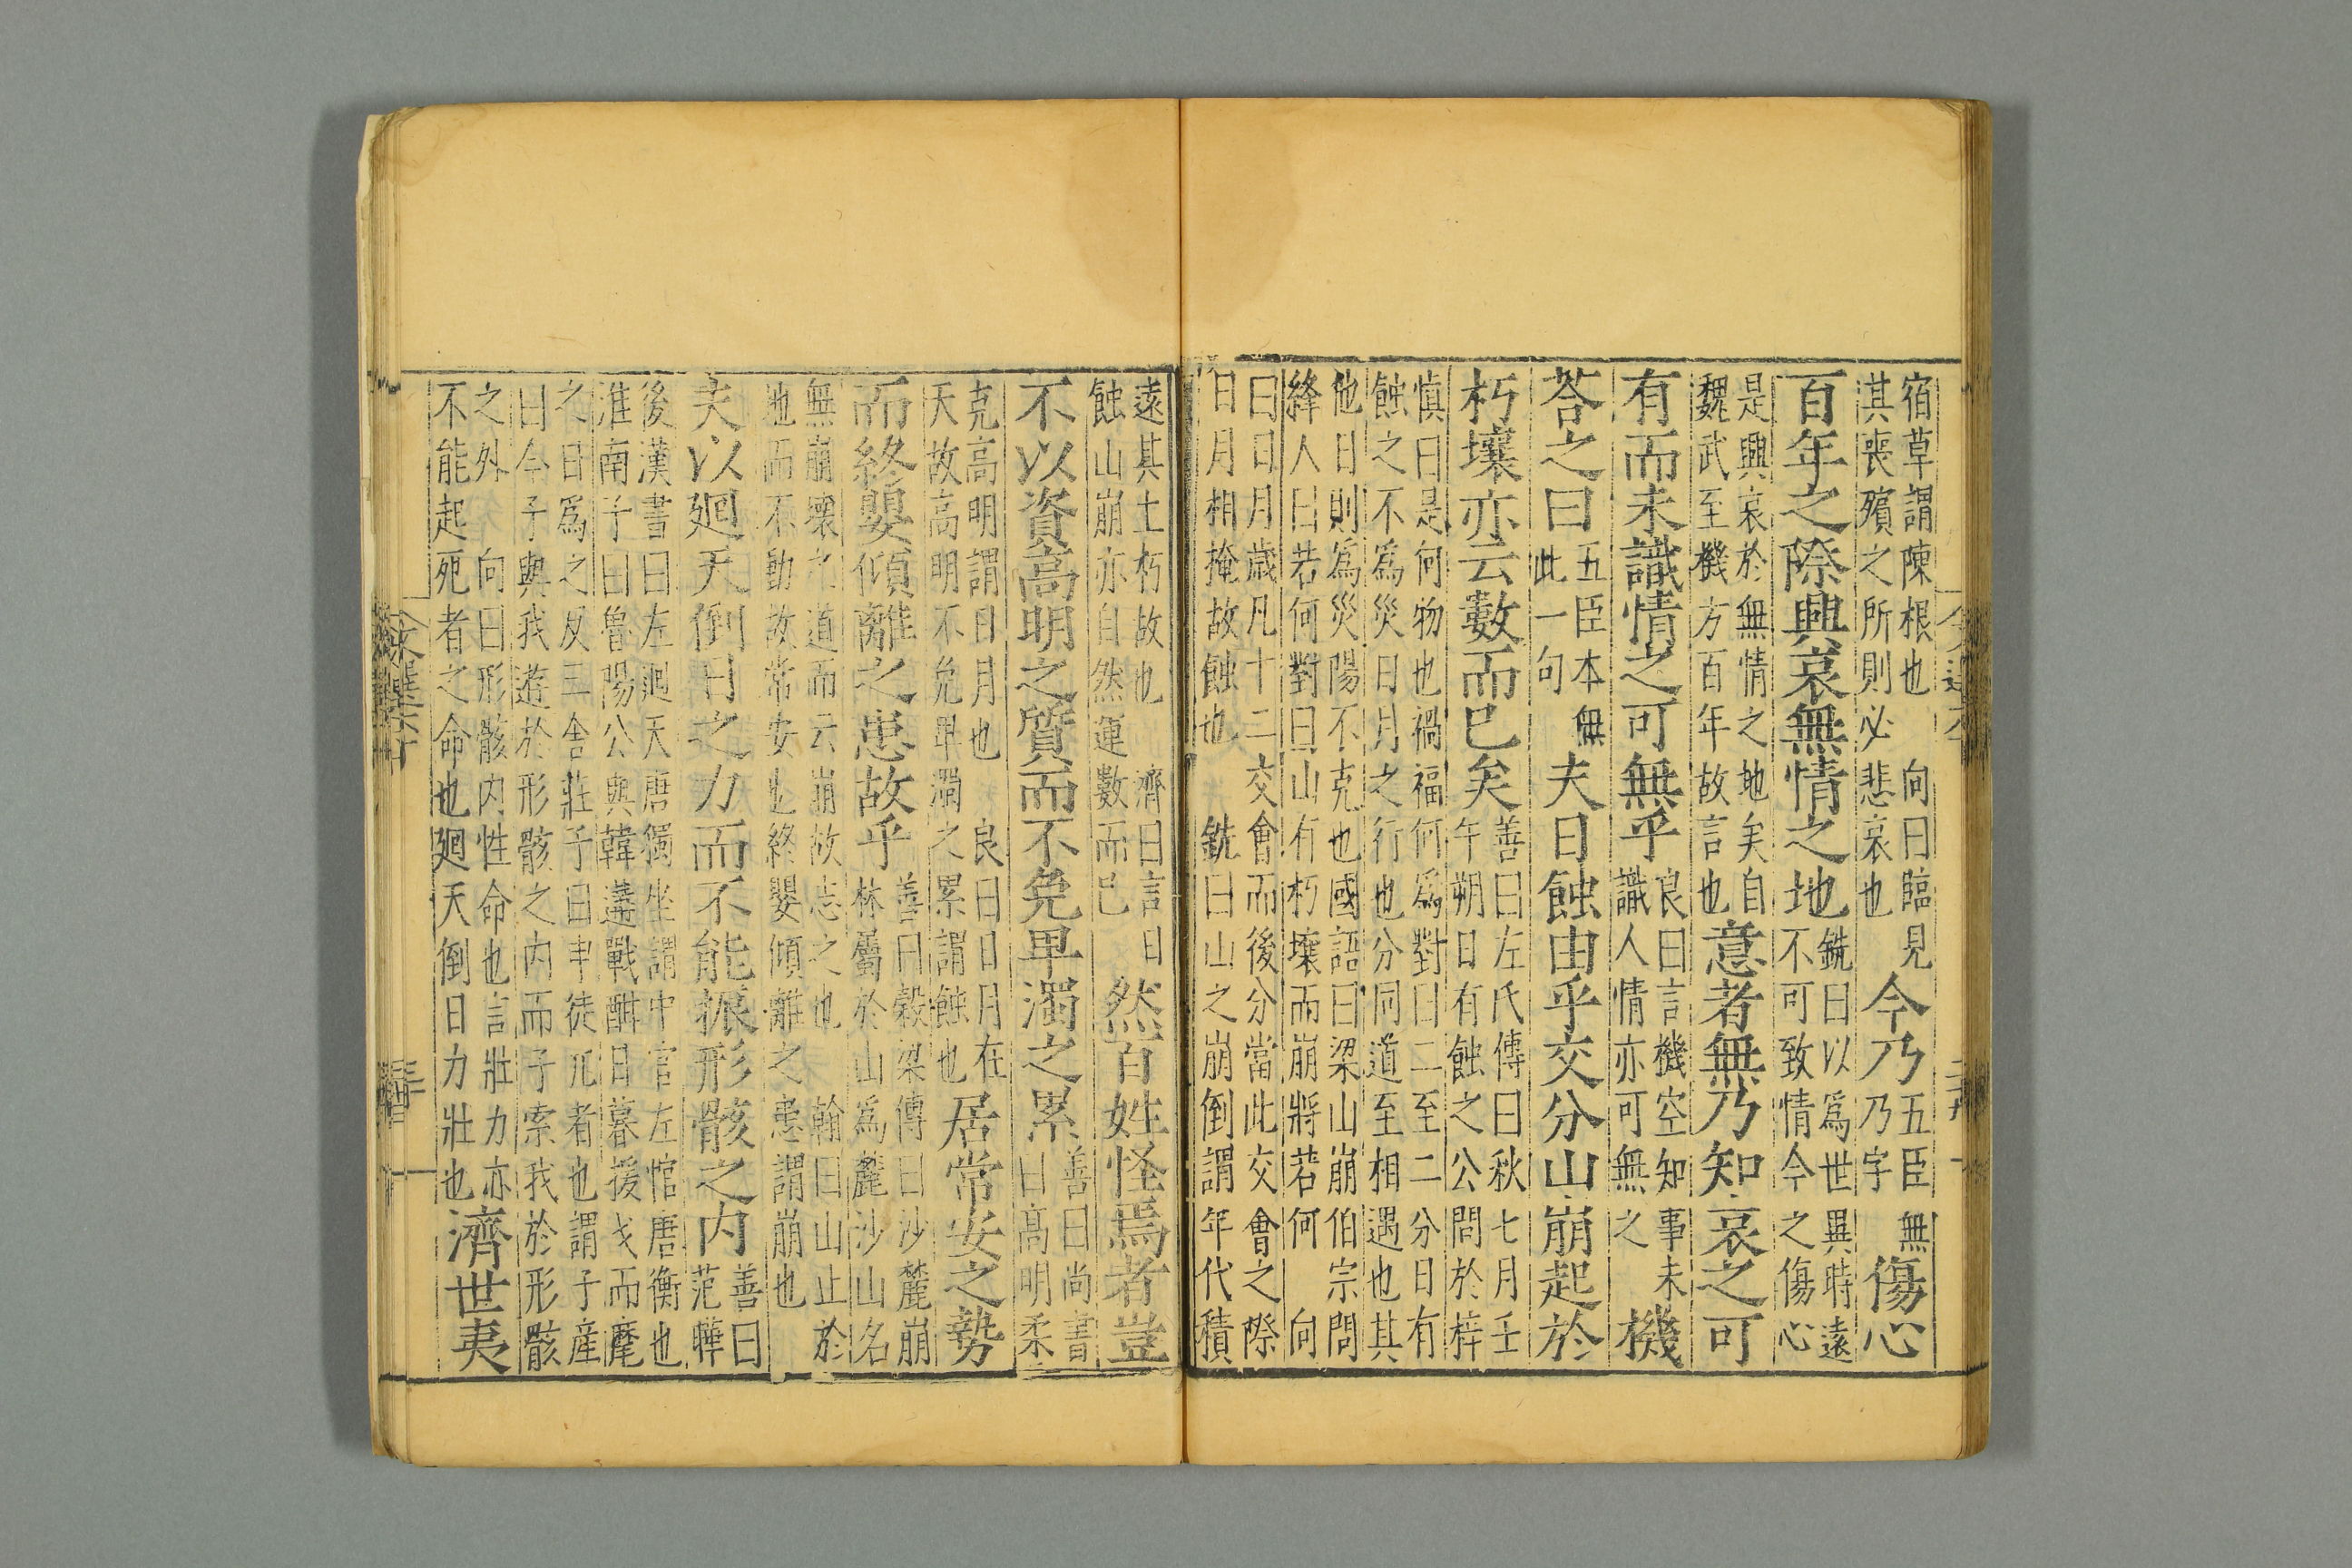 宿草謂陳根也　向曰臨見
其喪殯之所則必悲哀也
今乃
五臣無
乃字
傷心
百年之際興哀無情之地
銑曰以爲世異時遠
不可致情今之傷心
是興哀於無情之地矣自
魏武至機方百年故言也
意者無乃知哀之可
有而未識情之可無乎
良曰言機空知事未
識人情亦可無之
機
荅之曰
五臣本無
此一句
夫日蝕由乎交分山崩起於
朽壤亦云數而已矣
善曰左氏傳曰秋七月壬
午朔日有蝕之公問於梓
慎曰是何物也禍福何爲對曰二至二分日有
蝕之不爲災日月之行也分同道至相遇也其
他日則爲災陽不克也國語曰梁山崩伯宗問
絳人曰若何對曰山有朽壤而崩將若何　向
曰日月歲凡十二交會而後分當此交會之際
日月相掩故蝕也　銑曰山之崩倒謂年代積
遠其土朽故也　濟曰言日
蝕山崩亦自然運數而已
然百姓怪焉者豈
不以資高明之質而不免卑濁之累
善曰尚書
曰高明柔
克高明謂日月也　良曰日月在
天故高明不免卑濁之累謂蝕也
居常安之勢
而終嬰傾離之患故乎
善曰穀梁傳曰沙麓崩
林屬於山爲麓沙山名
無崩壞之道而云崩故志之也　翰曰山止於
地而不動故常安也終嬰傾離之患謂崩也
夫以廻天倒日之力而不能振形骸之内
善曰
范曄
後漢書曰左廻天唐獨坐謂中官左悺唐衡也
淮南子曰魯陽公與韓遘戰酣日暮援戈而麾
之日爲之反三舍莊子曰申徒兀者也謂子産
曰今子與我遊於形骸之内而子索我於形骸
之外　向曰形骸内性命也言壯力亦
不能起死者之命也廻天倒日力壯也
濟世夷
文選六十